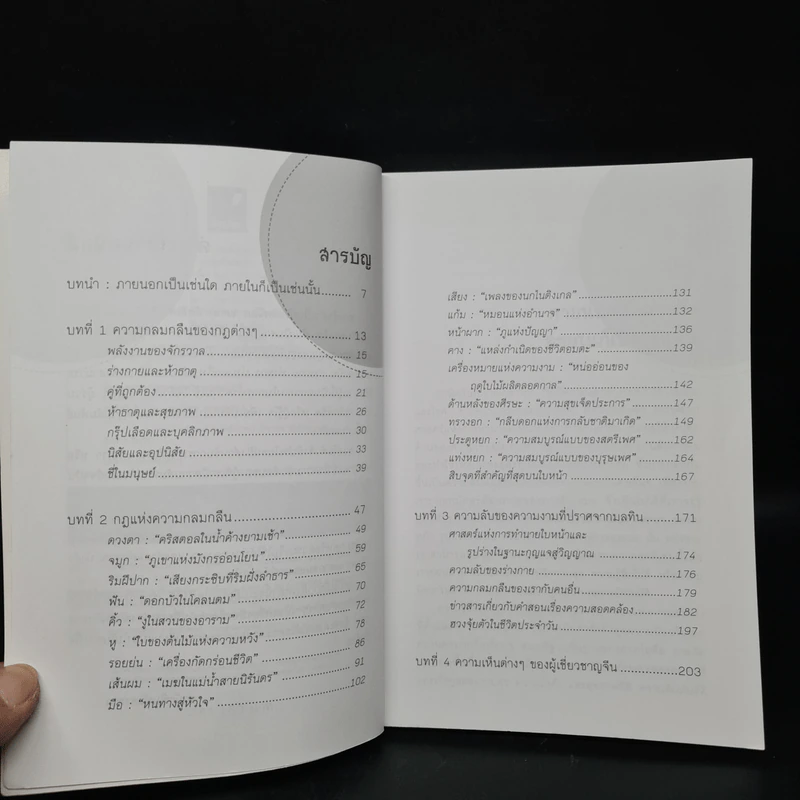 สารบัญ
บทนำ : ภายนอกเป็นเช่นใด ภายในก็เป็นเช่นนั้น......... 7
บทที่ 1 ความกลมกลืนของกฎต่างๆ ........................ 13
พลังงานของจักรวาล ........................................ 15
ร่างกายและห้าธาตุ ........................................ 15
คู่ที่ถูกต้อง .................................................. 21
ห้าธาตุและสุขภาพ ........................................ 26
กรุ๊ปเลือดและบุคลิกภาพ ................................. 30
นิสัยและอุปนิสัย ........................................... 33
ชี่ในมนุษย์ .................................................. 39
บทที่ 2 กฎแห่งความกลมกลืน ............................. 47
ดวงตา : “คริสตอลในน้ำค้างยามเช้า” ................ 49
จมูก : “ภูเขาแห่งมังกรอ่อนโยน” ...................... 59
ริมฝีปาก : “เสียงกระซิบที่ริมฝั่งลำธาร” ............. 65
ฟัน : “ดอกบัวในโคลนตม” .............................. 70
คิ้ว : “งูในสวนของอาราม” .............................. 72
หู : “ใบของต้นไม้แห่งความหวัง” ...................... 78
รอยย่น : “เครื่องกัดกร่อนชีวิต” ....................... 86
เส้นผม : “เมฆในแม่น้ำสายนิรันดร” ................... 91
มือ : “หนทางสู่หัวใจ” .................................... 102
เสียง : “เพลงของนกในดิงเกล” ......................... 131
แก้ม : “หมอนแห่งอำนาจ” .............................. 132
หน้าผาก : “ภูแห่งปัญญา” .............................. 136
คาง : “แหล่งกำเนิดของชีวิตอมตะ” .................. 139
เครื่องหมายแห่งความงาม : “หน่ออ่อนของ
ฤดูใบไม้ผลิตลอดกาล” ................................. 142
ด้านหลังของศีรษะ : “ความสุขเจ็ดประการ” ......... 147
ทรวงอก : “กลีบดอกแห่งการกลับชาติมาเกิด” ...... 149
ประตูหยก : “ความสมบูรณ์แบบของสตรีเพศ” ....... 162
แท่งหยก : “ความสมบูรณ์แบบของบุรุษเพศ” ........ 164
สิบจุดที่สำคัญที่สุดบนใบหน้า ........................... 167
บทที่ 3 ความลับของความงามที่ปราศจากมลทิน ....... 171
ศาสตร์แห่งการทำนายใบหน้าและ
รูปร่างในฐานะกุญแจสู่วิญญาณ ...................... 174
ความลับของร่างกาย ...................................... 176
ความกลมกลืนของเรากับคนอื่น ........................ 179
ข่าวสารเกี่ยวกับคำสอนเรื่องความสอดคล้อง ........ 182
ฮวงจุ้ยตัวในชีวิตประจำวัน .............................. 197
บทที่ 4 ความเห็นต่างๆ ของผู้เชี่ยวชาญจีน ............. 203